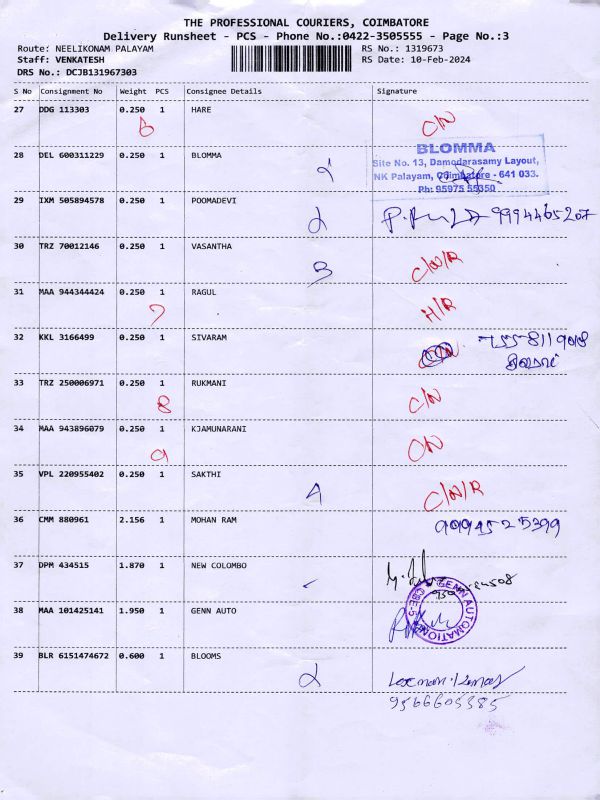 THE PROFESSIONAL COURIERS, COIMBATORE
Delivery Runsheet - PCS - Phone No.:0422-3505555 - Page No.:3
Route: NEELIKONAM PALAYAM RS No.: 1319673
Staff: VENKATESH RS Date: 10-Feb-2024
DRS No.: DCJB131967303
S No Consignment No Weight PCS Consignee Details Signature
27 DDG 113303 0.250 1 HARE
6 C/N
28 DEL 600311229 0.250 1 BLOMMA
BLOMMA
Site No. 13, Damodarasamy Layout,
NK Palayam, Coimbatore - 641 033.
Ph: 95975 55350
29 IXM 505894578 0.250 1 POOMADEVI
2 9994465207
30 TRZ 70012146 0.250 1 VASANTHA
3 C/N/R
31 MAA 944344424 0.250 1 RAGUL
7 H/R
32 KKL 3166499 0.250 1 SIVARAM
33 TRZ 250006971 0.250 1 RUKMANI
8 C/N
34 MAA 943896079 0.250 1 KJAMUNARANI
9 C/N
35 VPL 220955402 0.250 1 SAKTHI
4 C/N/R
36 CMM 880961 2.156 1 MOHAN RAM
37 DPM 434515 1.870 1 NEW COLOMBO
38 MAA 101425141 1.950 1 GENN AUTO
GENN AUTOMATION
CBE-5
39 BLR 6151474672 0.600 1 BLOOMS
2
9566605385